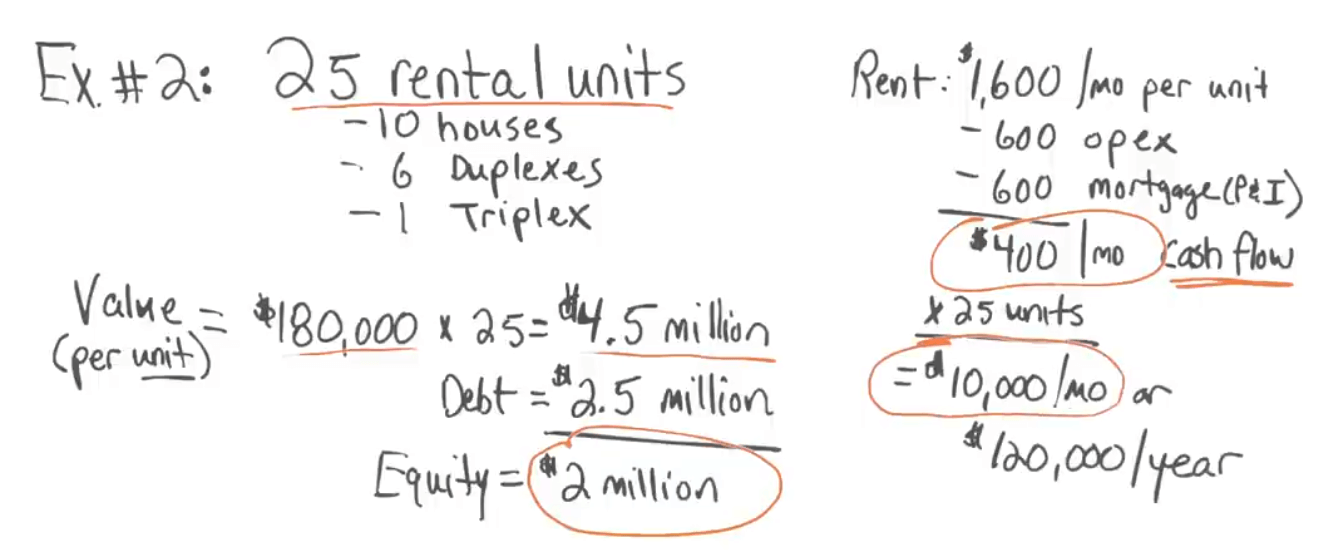 Ex. #2: 25 rental units
- 10 houses
- 6 Duplexes
- 1 Triplex
Value = $180,000 x 25 = $4.5 million
(per unit)
Debt = $2.5 million
Equity = $2 million
Rent: $1,600 /mo per unit
- 600 opex
- 600 mortgage (P&I)
$400 /mo cash flow
x 25 units
= $10,000/mo or
$120,000/year